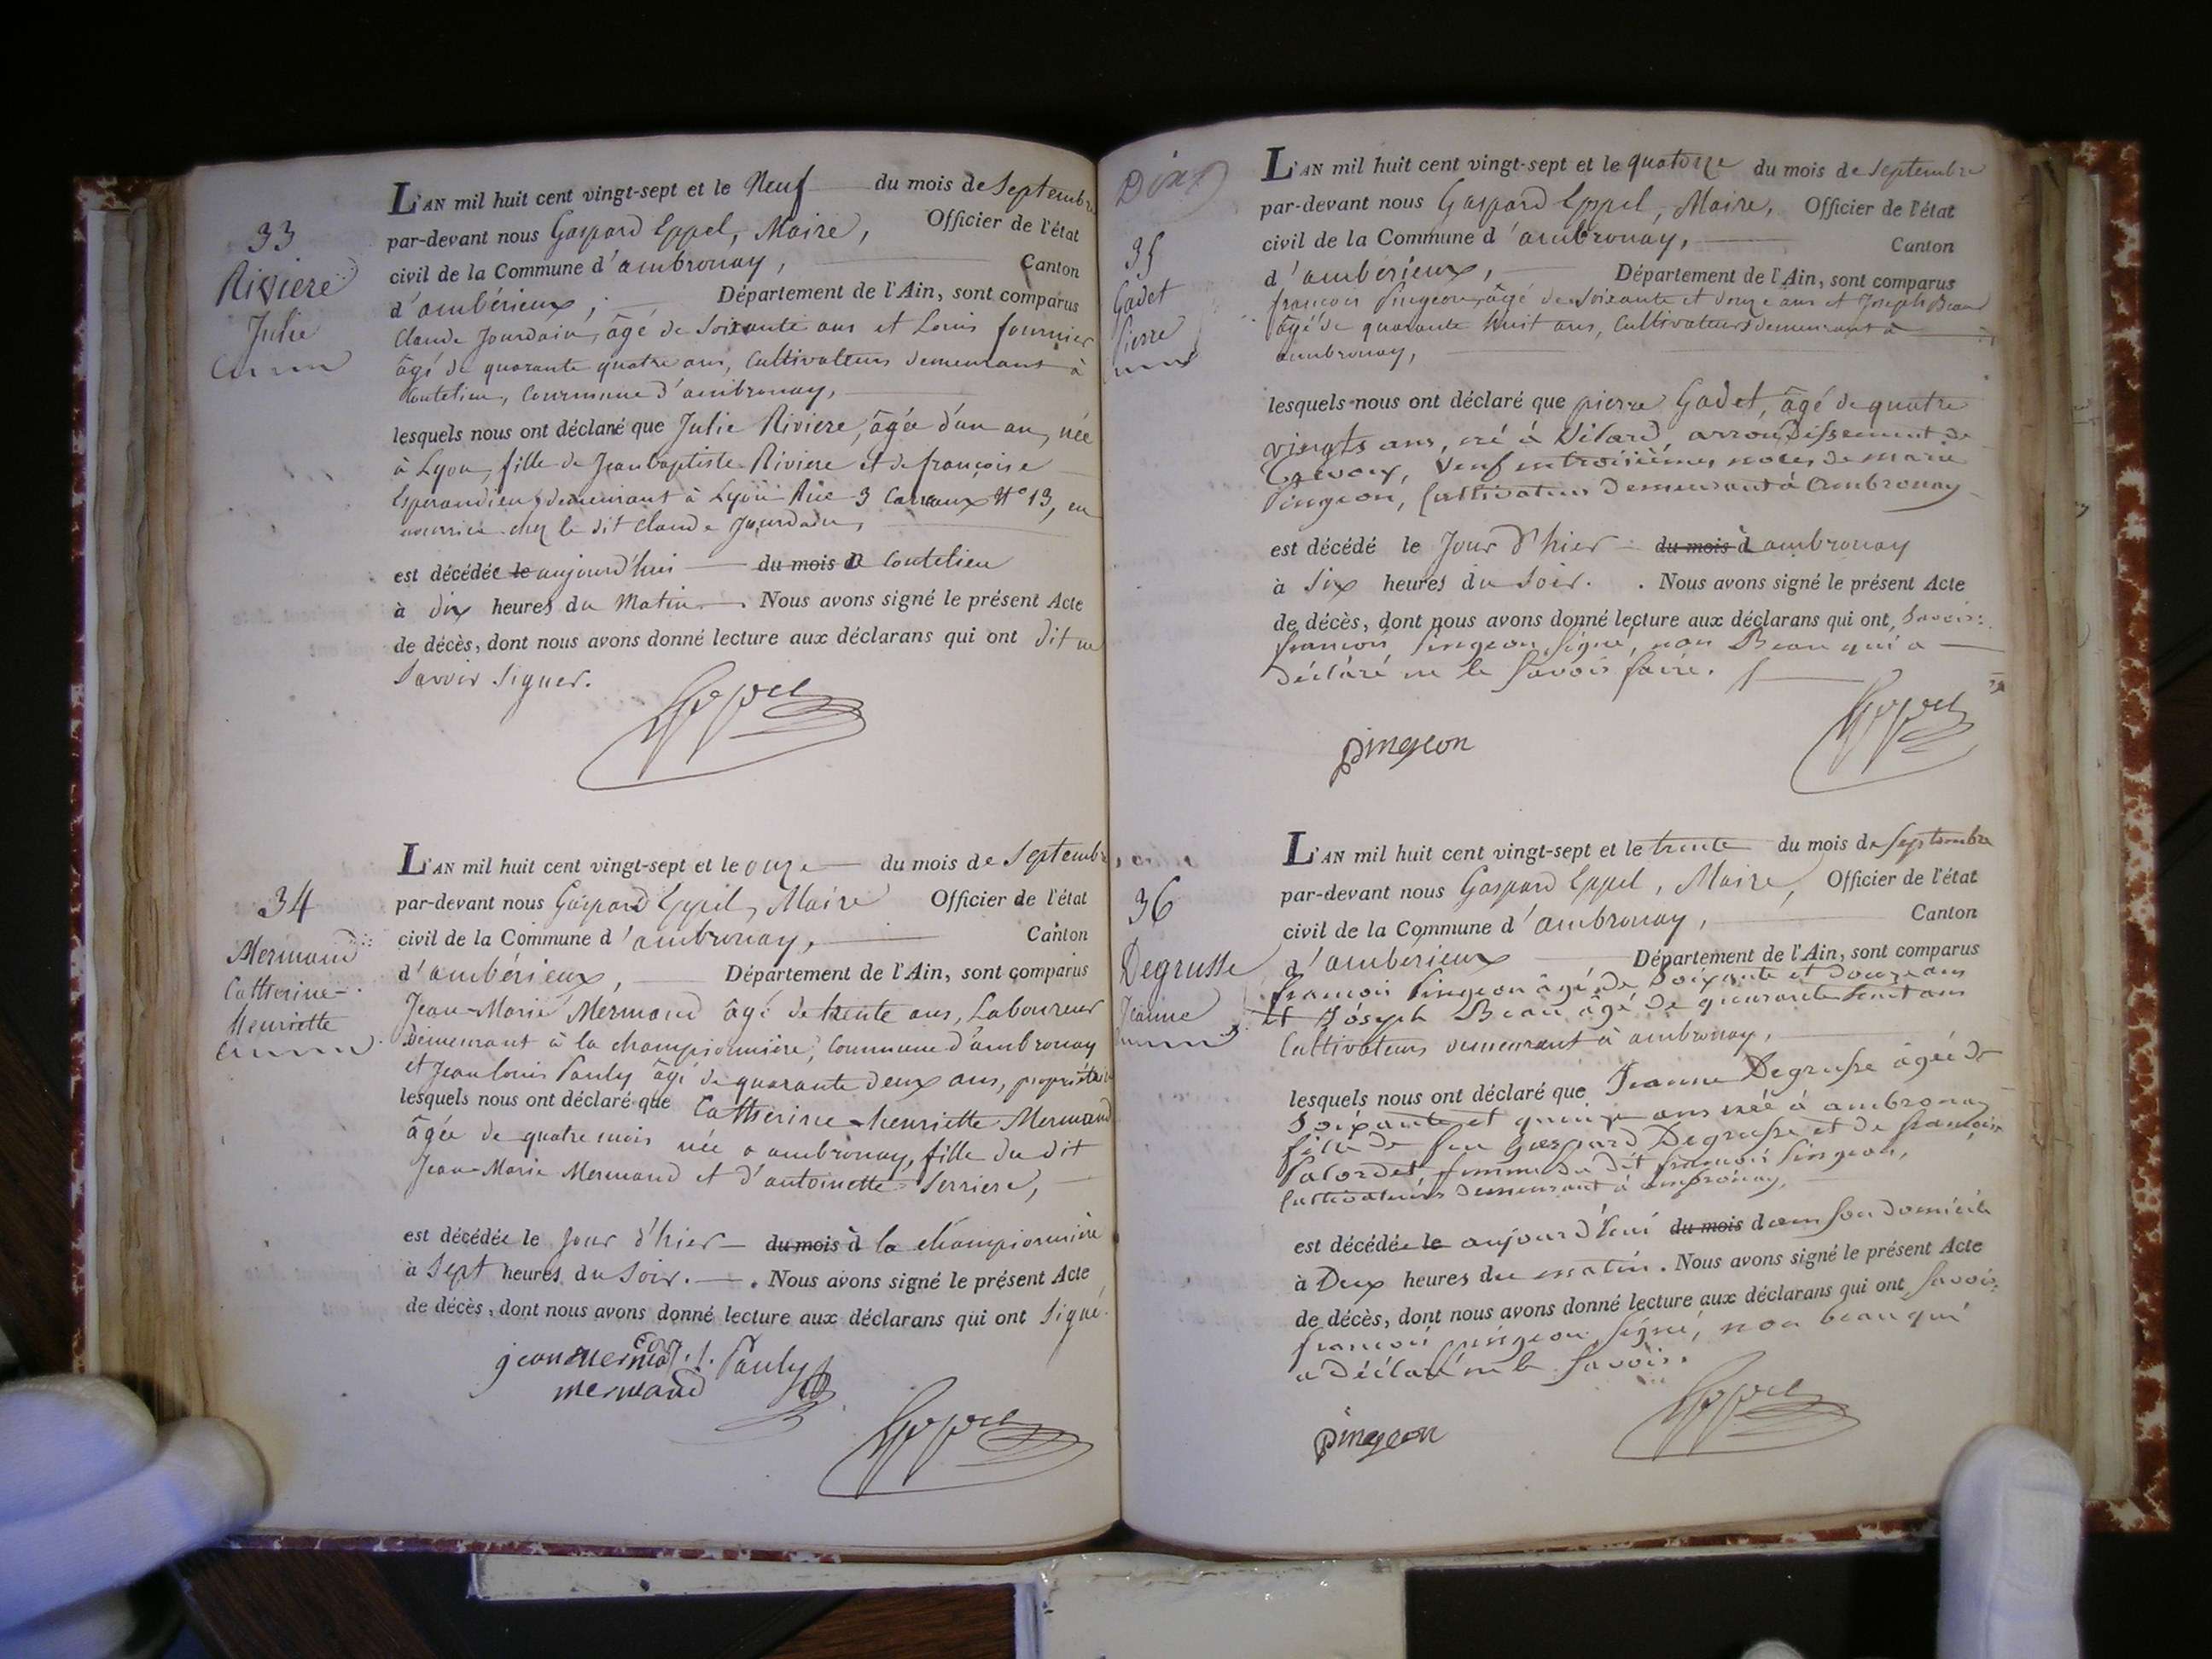 33
Riviere
Julie
L'AN mil huit cent vingt-sept et le Neuf du mois de Septembre
par-devant nous Gaspard Eppel, Maire, Officier de l'état
civil de la Commune d'ambronay, Canton
d'ambérieux, Département de l'Ain, sont comparus
Claude Jourdain, âgé de soixante ans et Louis fournier
âgé de quarante quatre ans, Cultivateurs demeurant à
Coutelieu, Commune d'ambronay,
lesquels nous ont déclaré que Julie Riviere, âgée d'un an, née
à Lyon, fille de Jean baptiste Riviere et de françoise
Esperandieu, demeurant à Lyon Rüe 3 Carreaux N° 13, en
nourrice chez le dit Claude Jourdain,
est décédée le aujourd'hui du mois d Coutelieu
à dix heures du Matin. Nous avons signé le présent Acte
de décès, dont nous avons donné lecture aux déclarans qui ont dit ne
Savoir Signer.
Eppel
34
Mermand
Catherine
Henriette
L'AN mil huit cent vingt-sept et le onze du mois de Septembre
par-devant nous Gaspard Eppel, Maire Officier de l'état
civil de la Commune d'ambronay, Canton
d'ambérieux, Département de l'Ain, sont comparus
Jean-Marie Mermand âgé de trente ans, Laboureur
Demeurant à la championnière, Commune d'ambronay
et Jean louis Pauly âgé de quarante deux ans, propriétaire
lesquels nous ont déclaré que Catherine-henriette Mermand
âgée de quatre mois née a ambronay, fille du dit
Jean-Marie Mermand et d'antoinette Serriere,
est décédée le Jour d'hier du mois d à la championnière
à Sept heures du Soir. Nous avons signé le présent Acte
de décès, dont nous avons donné lecture aux déclarans qui ont Signé.
J. L. Pauly
mermand
Eppel
Dix
35
Gadet
Pierre
L'AN mil huit cent vingt-sept et le quatorze du mois de Septembre
par-devant nous Gaspard Eppel, Maire, Officier de l'état
civil de la Commune d'ambronay, Canton
d'ambérieux, Département de l'Ain, sont comparus
françois Pingeon, âgé de soixante et douze ans et Joseph Beau
âgé de quarante huit ans, Cultivateurs demeurant à
ambronay,
lesquels nous ont déclaré que pierre Gadet, âgé de quatre
vingts ans, né à Vilard, arrondissement de
Trevoux, veuf en troisièmes noces de marie
Pingeon, Cultivateur demeurant à Ambronay
est décédé le Jour d'hier du mois d ambronay
à Six heures du Soir. Nous avons signé le présent Acte
de décès, dont nous avons donné lecture aux déclarans qui ont Savoir:
françois Pingeon Signé, non Beau qui a
déclaré ne le Savoir faire.
pingeon
Eppel
36
Degrusse
Jeanne
L'AN mil huit cent vingt-sept et le trente du mois de Septembre
par-devant nous Gaspard Eppel, Maire, Officier de l'état
civil de la Commune d'ambronay, Canton
d'amberieux Département de l'Ain, sont comparus
francois Pingeon âgé de Soixante et douze ans
et Joseph Beau âgé de quarante huit ans
Cultivateurs demeurant à ambronay,
lesquels nous ont déclaré que Jeanne Degrusse âgée de
Soixante et quinze ans née à ambronay
fille de feu Gaspard Degrusse et de françoise
Palordet femme du dit françois Pingeon,
Cultivateurs demeurant à ambronay,
est décédée le aujourd'hui du mois dans son domicile
à Deux heures du matin. Nous avons signé le présent Acte
de décès, dont nous avons donné lecture aux déclarans qui ont Savoir:
françois pingeon Signé, non beau qui
a déclaré ne le Savoir.
pingeon
Eppel